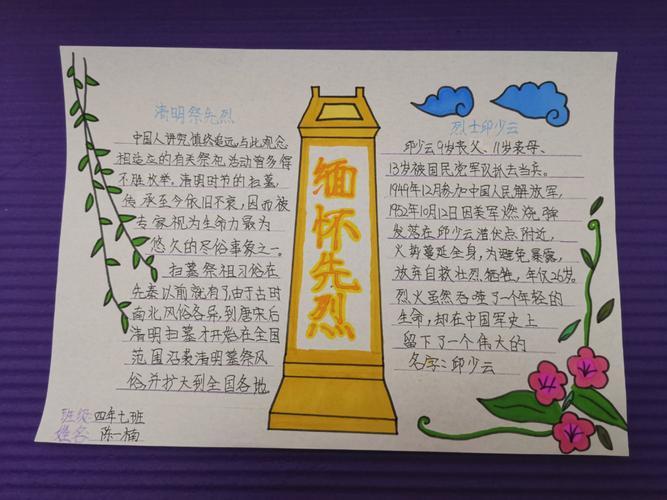 清明祭先烈
中国人讲究慎终追远,与此观念
相适应的有关祭祀活动曾多得
不胜枚举。清明时节的扫墓,
传承至今依旧不衰,因而被
专家视为生命力最为
悠久的尽俗事象之一。
扫墓祭祖习俗在
先秦以前就有了,由于古时
南北风俗各异,到唐宋后
清明扫墓才开始在全国
范围沿袭清明墓祭风
俗,并扩大到全国各地
班级:四年七班
姓名:陈一楠
缅怀先烈
烈士邱少云
邱少云9岁丧父、11岁丧母、
13岁被国民党军队抓去当兵。
1949年12月参加中国人民解放军,
1952年10月12日因美军燃烧弹
发落在邱少云潜伏点附近,
火势蔓延全身,为避免暴露,
放弃自救壮烈牺牲,年仅26岁。
烈火虽然吞噬了一个年轻的
生命,却在中国军史上
留下了一个伟大的
名字:邱少云